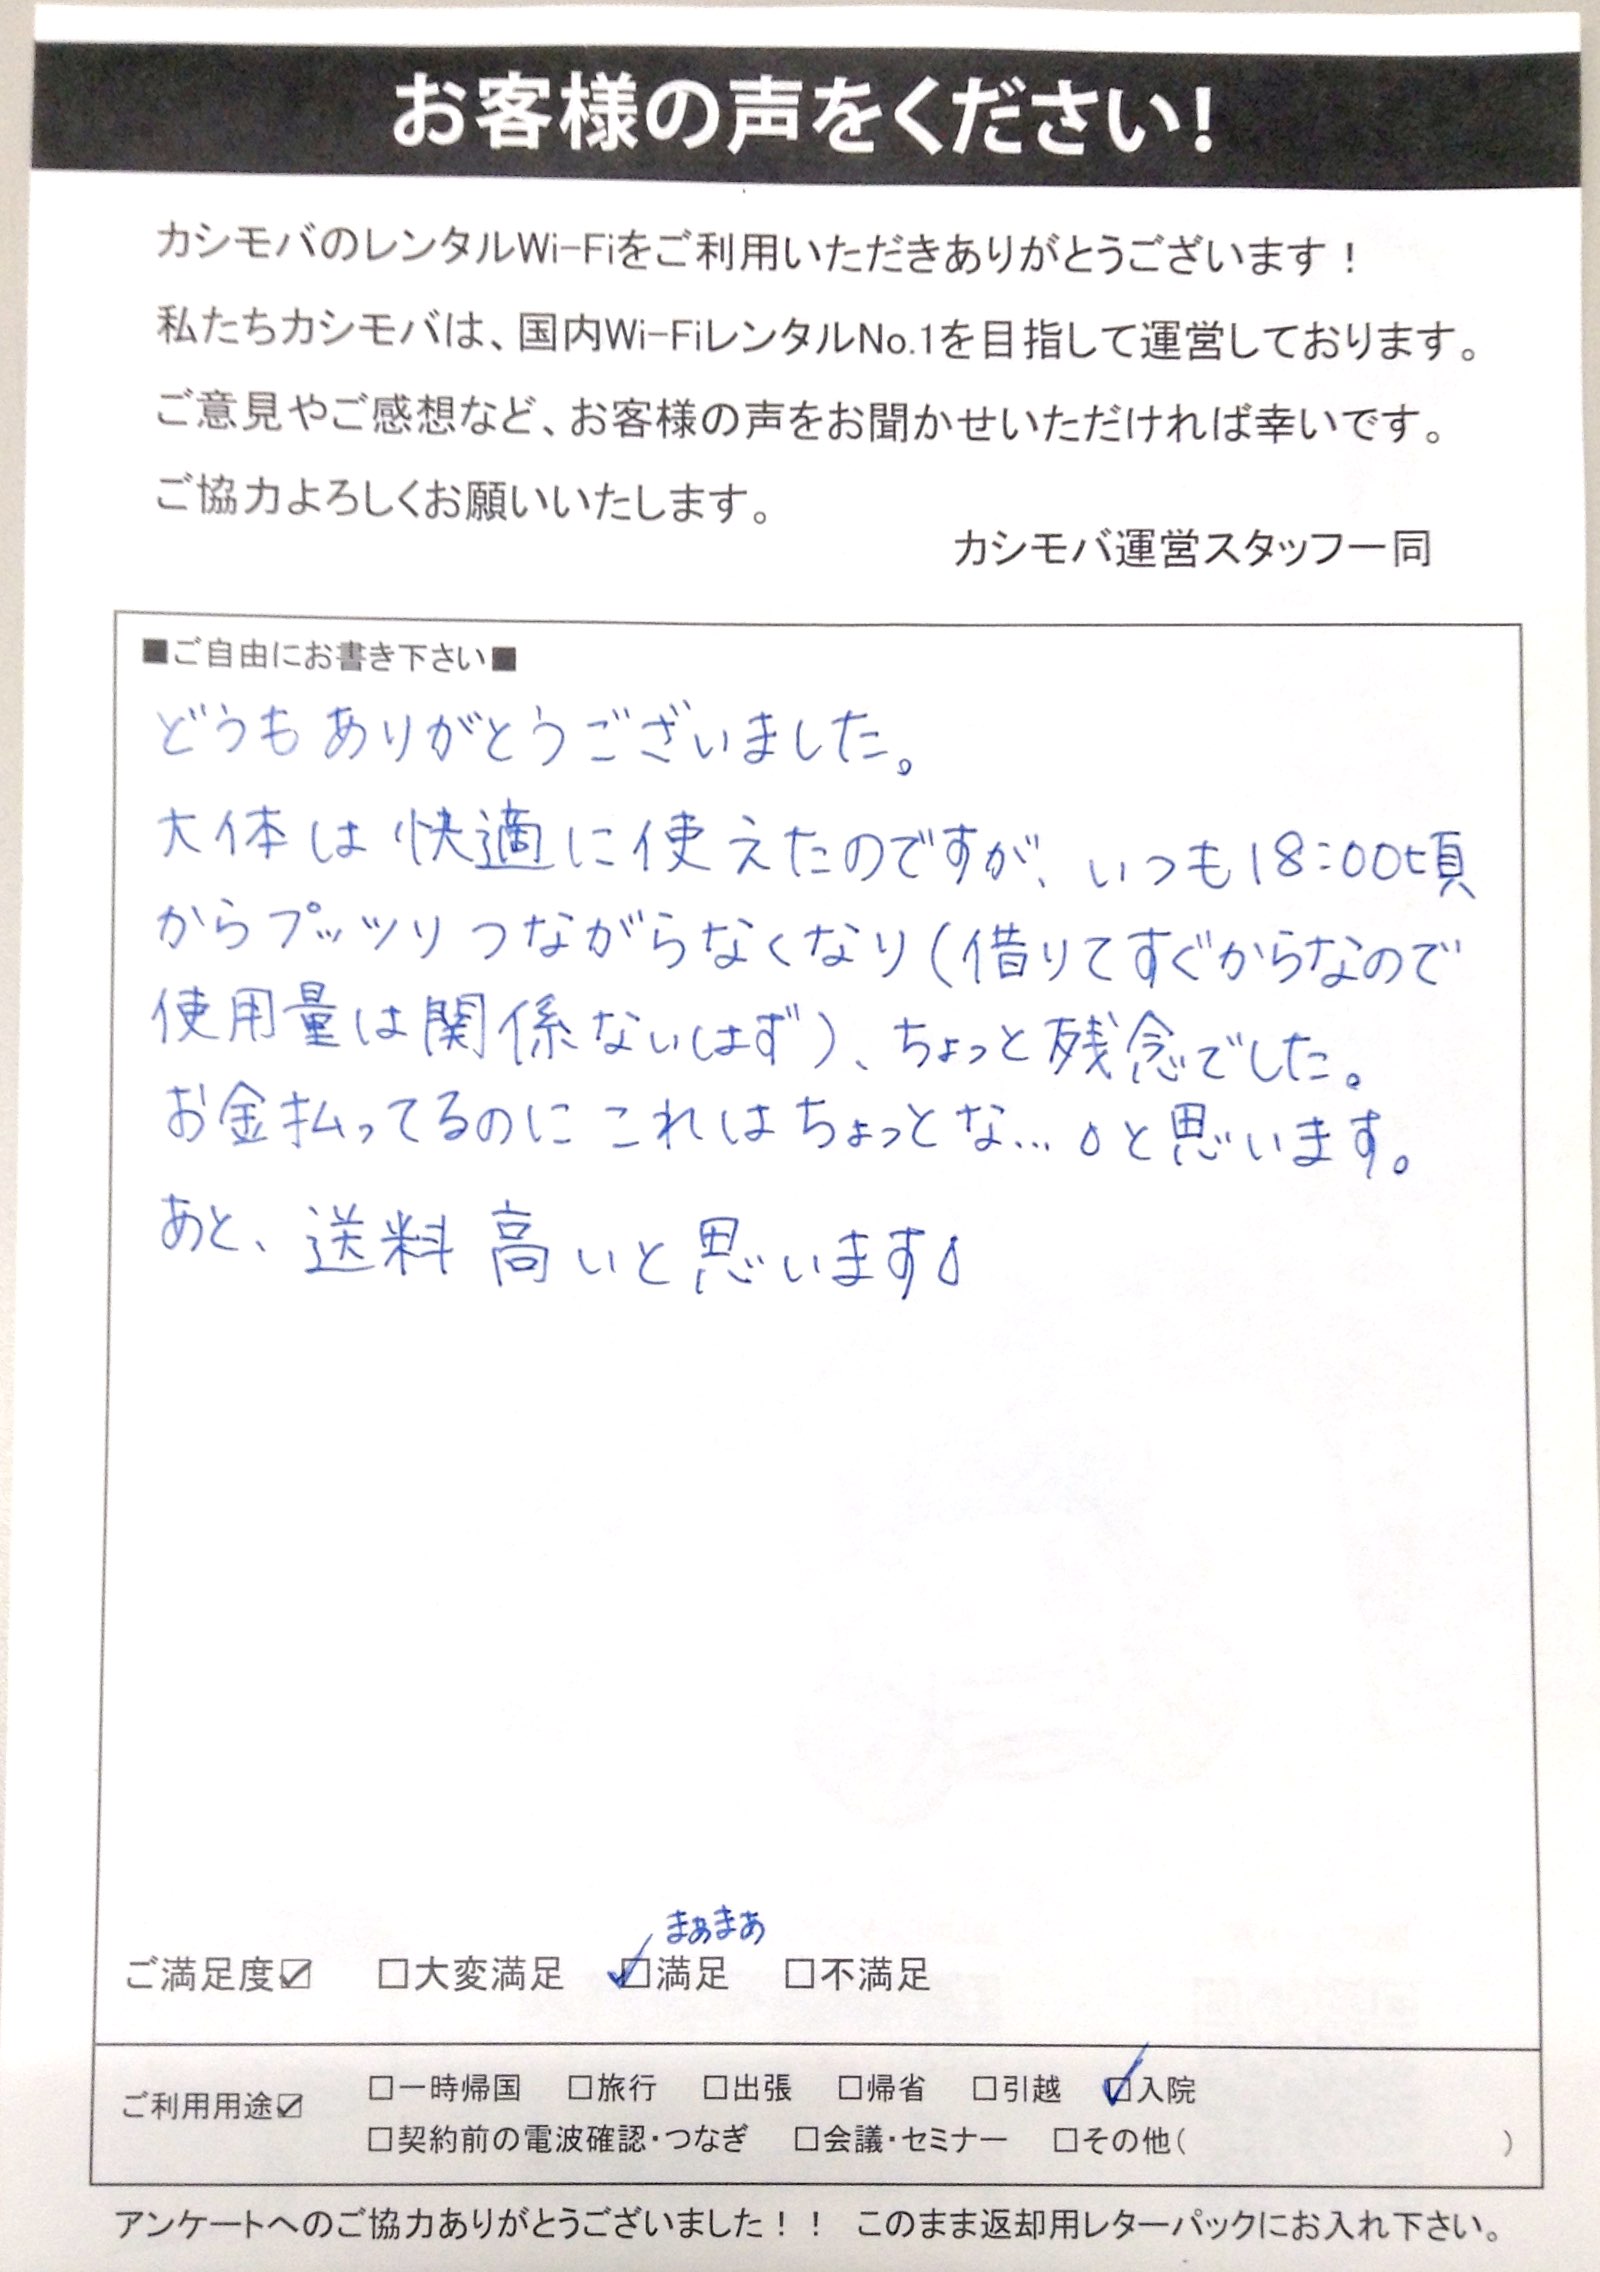 お客様の声をください!
カシモバのレンタルWi-Fiをご利用いただきありがとうございます！
私たちカシモバは、国内Wi-FiレンタルNo.1を目指して運営しております。
ご意見やご感想など、お客様の声をお聞かせいただければ幸いです。
ご協力よろしくお願いいたします。
カシモバ運営スタッフ一同
■ご自由にお書き下さい■
どうもありがとうございました。
大体は快適に使えたのですが、いつも18:00頃
からプッツリつながらなくなり(借りてすぐからなので
使用量は関係ないはず)、ちょっと残念でした。
お金払ってるのにこれはちょっとな…。と思います。
あと、送料高いと思います
まぁまぁ
ご満足度☑ □大変満足 ☑満足 □不満足
ご利用用途☑ □一時帰国 □旅行 □出張 □帰省 □引越 ☑入院
□契約前の電波確認・つなぎ □会議・セミナー □その他( )
アンケートへのご協力ありがとうございました！！ このまま返却用レターパックにお入れ下さい。